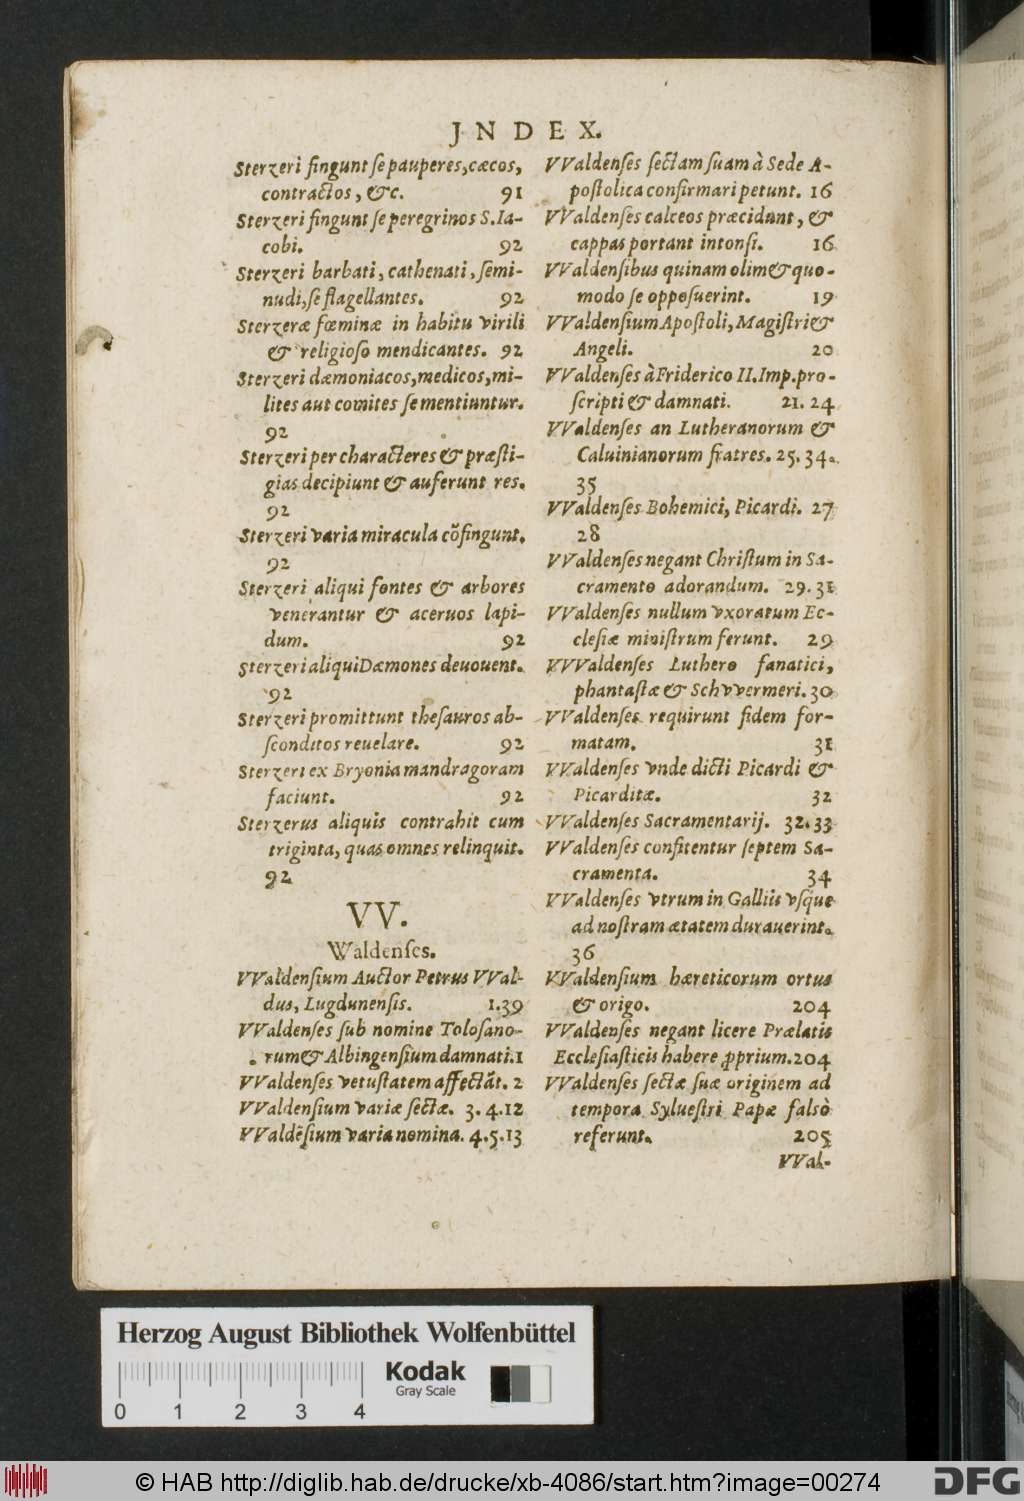 JNDEX.
Sterzeri fingunt se pauperes, cæcos,
contractos, &c. 91
Sterzeri fingunt se peregrinos S. Ia-
cobi. 92
Sterzeri barbati, cathenati, semi-
nudi, se flagellantes. 92
Sterzeræ fœminæ in habitu virili
& religioso mendicantes. 92
Sterzeri dæmoniacos, medicos, mi-
lites aut comites se mentiuntur.
92
Sterzeri per characteres & præsti-
gias decipiunt & auferunt res.
92
Sterzeri varia miracula cõfingunt.
92
Sterzeri aliqui fontes & arbores
venerantur & aceruos lapi-
dum. 92
Sterzeri aliqui Dæmones deuouent.
92
Sterzeri promittunt thesauros ab-
sconditos reuelare. 92
Sterzeri ex Bryonia mandragoram
faciunt. 92
Sterzerus aliquis contrahit cum
triginta, quas omnes relinquit.
92
VV.
Waldenses.
VValdensium Auctor Petrus VVal-
dus, Lugdunensis. 1.39
VValdenses sub nomine Tolosano-
rum & Albingensium damnati. 1
VValdenses vetustatem affectãt. 2
VValdensium variæ sectæ. 3. 4. 12
VValdẽsium varia nomina. 4. 5. 13
VValdenses sectam suam à Sede A-
postolica confirmari petunt. 16
VValdenses calceos præcidunt, &
cappas portant intonsi. 16
VValdensibus quinam olim & quo-
modo se opposuerint. 19
VValdensium Apostoli, Magistri &
Angeli. 20
VValdenses à Friderico II. Imp. pro-
scripti & damnati. 21. 24
VValdenses an Lutheranorum &
Caluinianorum fratres. 25. 34.
35
VValdenses Bohemici, Picardi. 27
28
VValdenses negant Christum in Sa-
cramento adorandum. 29. 31
VValdenses nullum vxoratum Ec-
clesiæ ministrum ferunt. 29
VVValdenses Luthero fanatici,
phantastæ & Schvvermeri. 30
VValdenses requirunt fidem for-
matam. 31
VValdenses vnde dicti Picardi &
Picarditæ. 32
VValdenses Sacramentarij. 32. 33
VValdenses confitentur septem Sa-
cramenta. 34
VValdenses vtrum in Galliis vsque
ad nostram ætatem durauerint.
36
VValdensium hæreticorum ortus
& origo. 204
VValdenses negant licere Prælatis
Ecclesiasticis habere ꝓprium. 204
VValdenses sectæ suæ originem ad
tempora Syluestri Papæ falsò
referunt. 205
VVal-
Herzog August Bibliothek Wolfenbüttel
Kodak
Gray Scale
0 1 2 3 4
© HAB http://diglib.hab.de/drucke/xb-4086/start.htm?image=00274
DFG